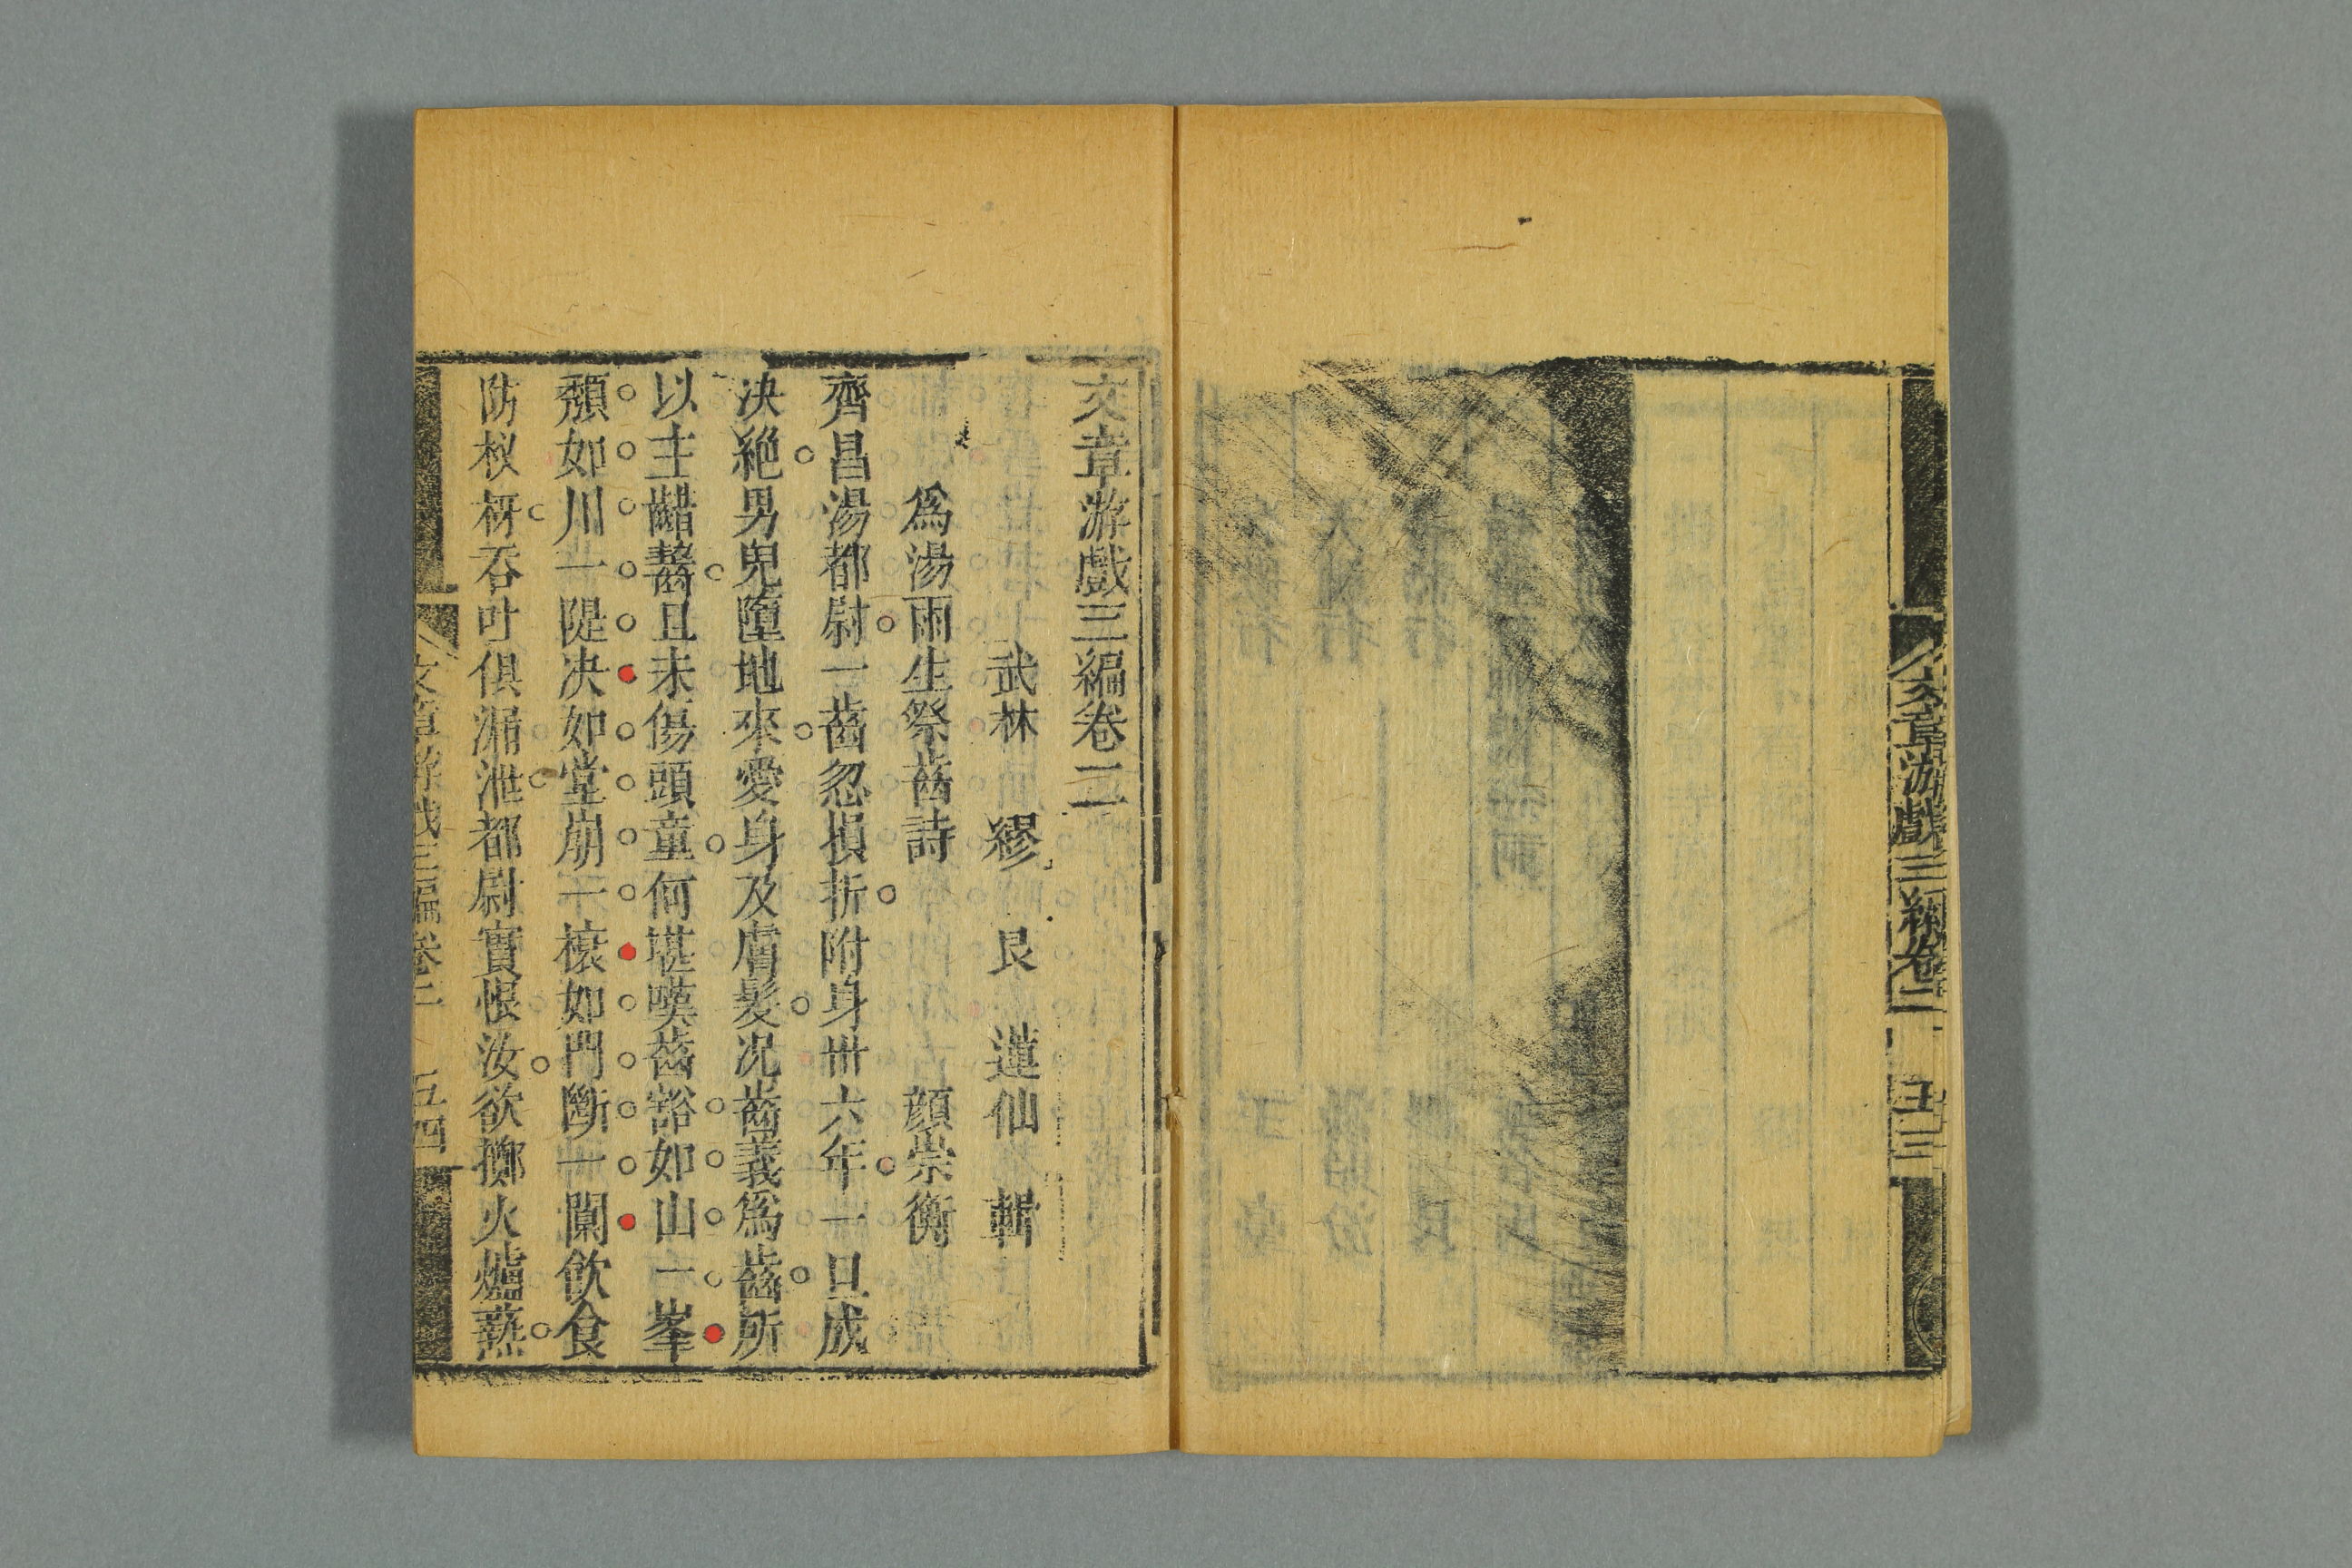 文章游戲三編卷二
五三
文章游戲三編卷二
武林 繆 艮 蓮仙 輯
爲湯雨生祭齒詩 顔崇衡
齊昌湯都尉一齒忽損折附身卅六年一旦成
决絶男兒墮地來愛身及膚髮况齒義爲齒所
以主齰齧且未傷頭童何堪嘆齒豁如山一峯
頽如川一隄决如堂崩一榱如門斷一闑飲食
防杈枒吞吐俱漏泄都尉實恨汝欲擲火爐爇
文章游戲三編卷二
五四